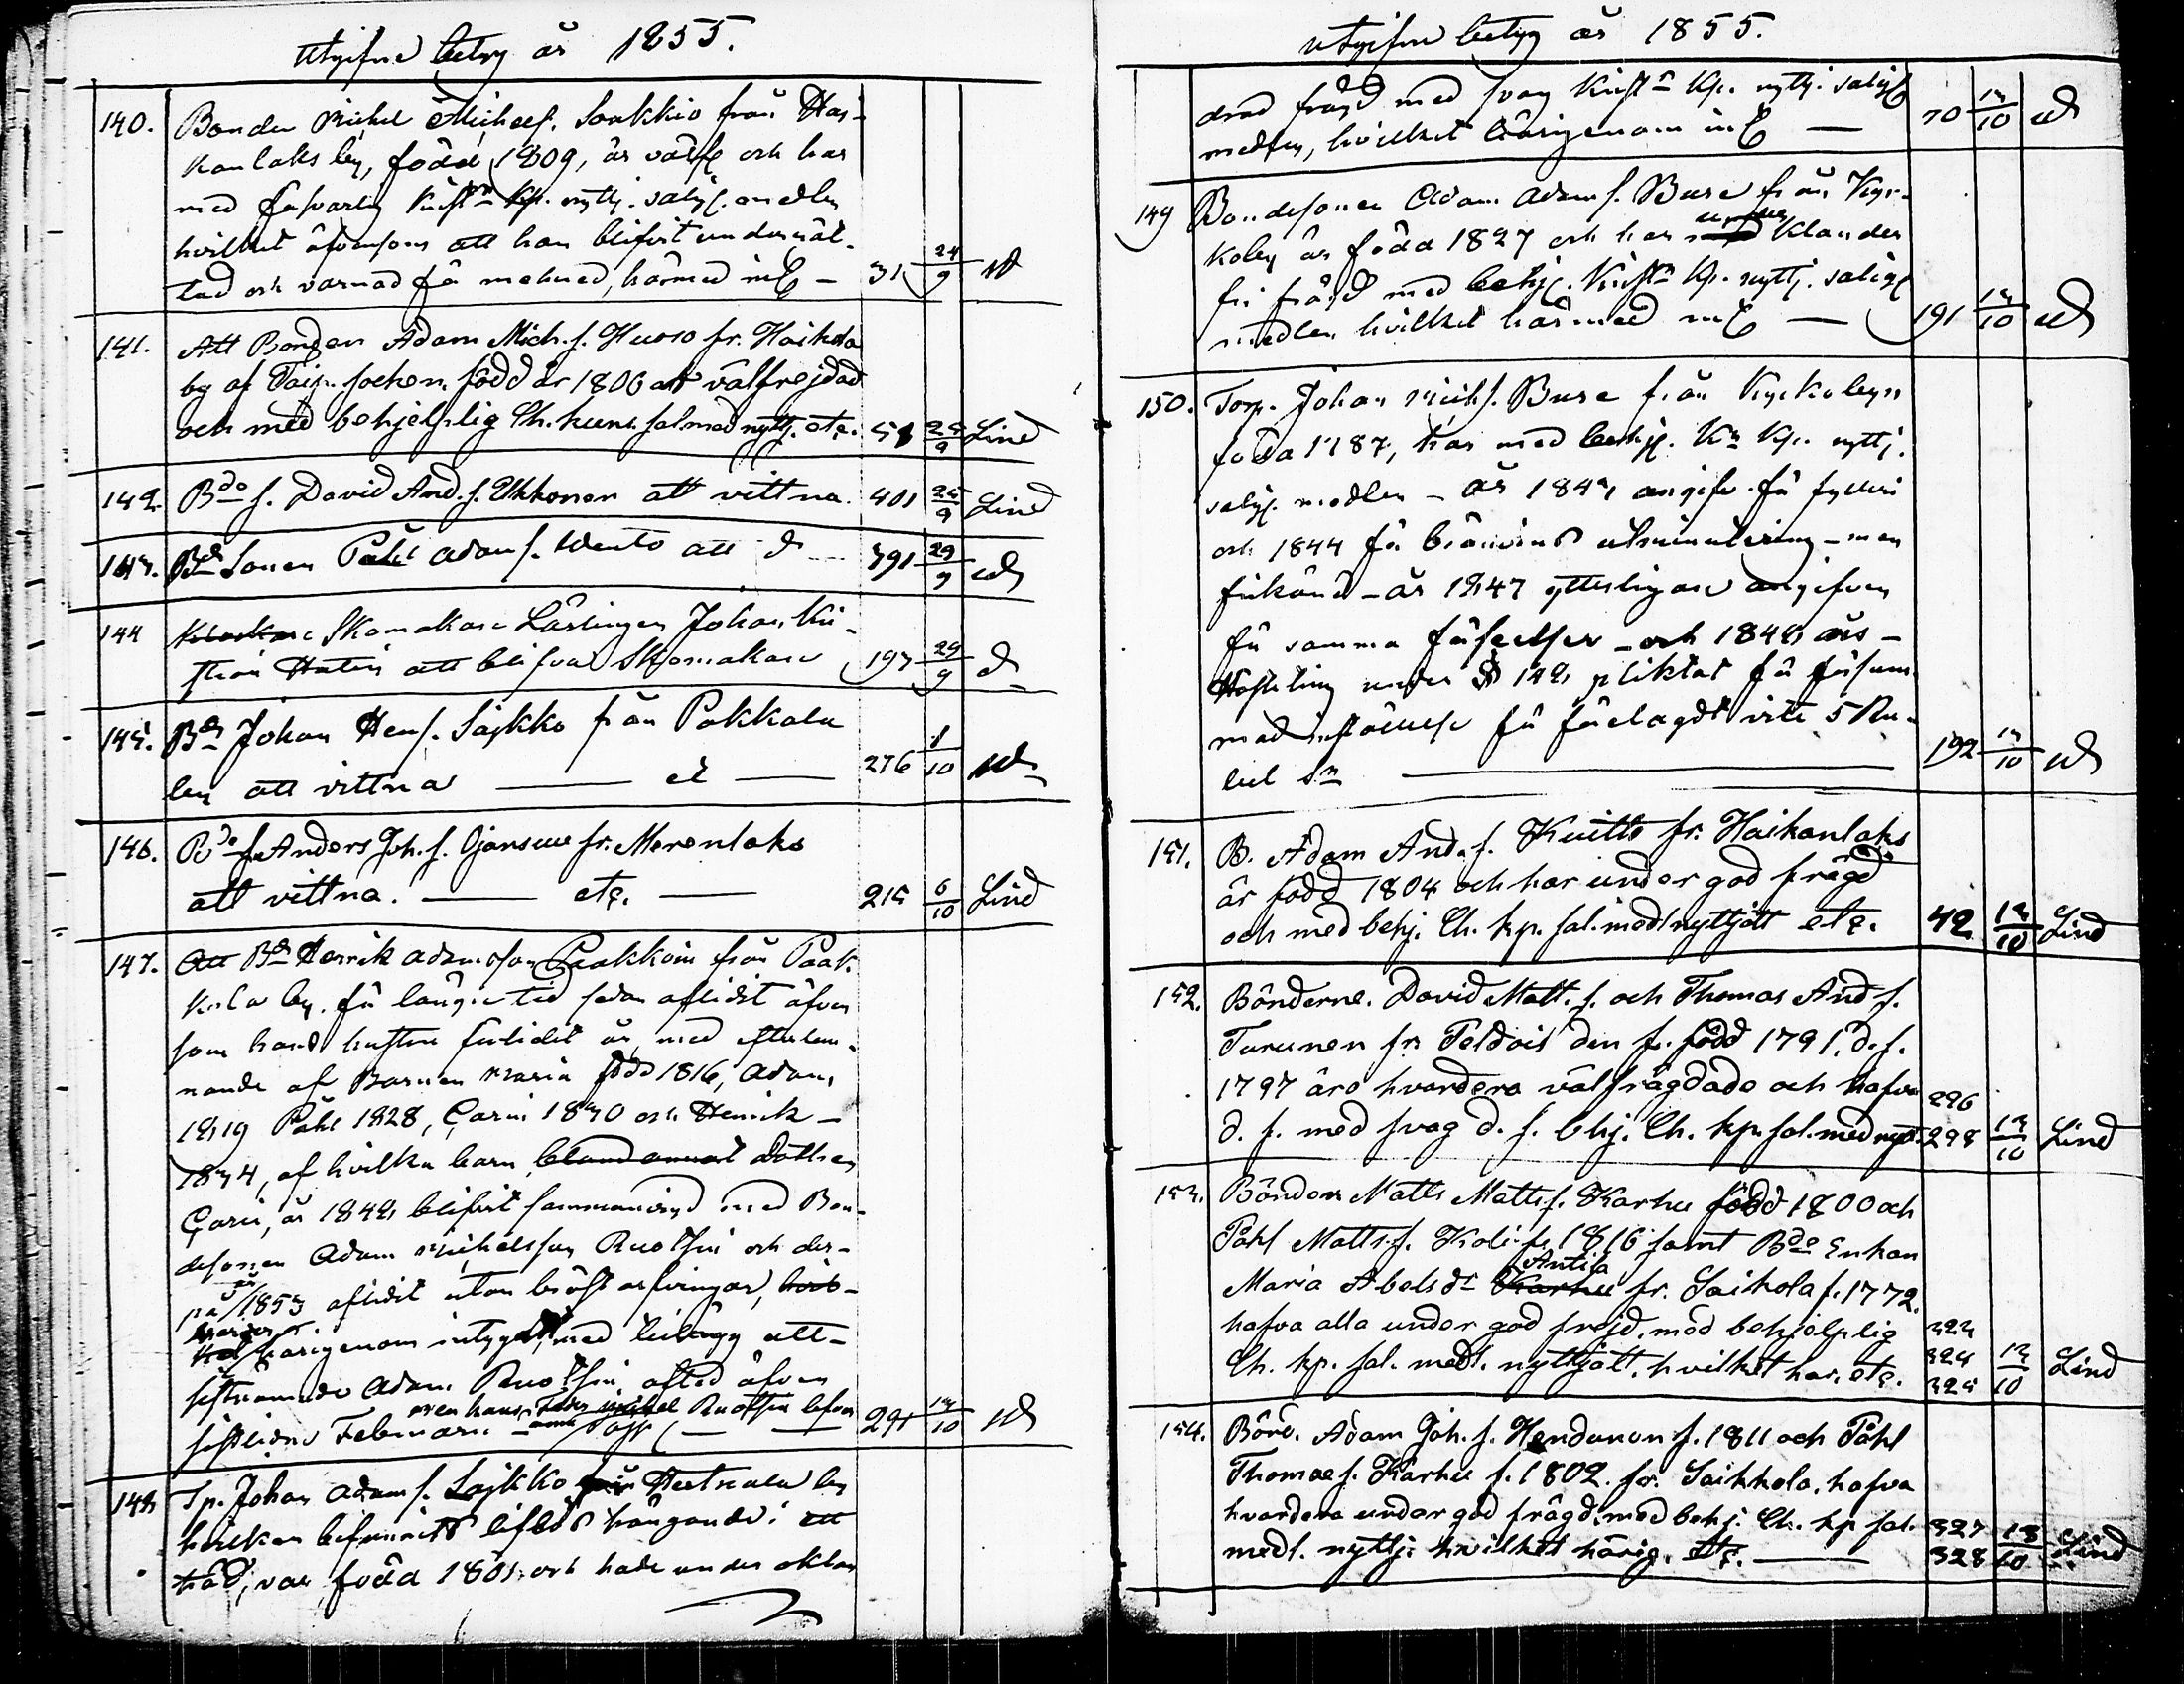 Utgifne betyg år 1855.
140. Bonden Michel Michelss. Saakkio från Hai-
kanlaks by, född 1809, är välfr. och har
med försvarlig Krist. kp. nyttj. saligh. medlen
hvilket äfvensom att han blifvit underrät-
tad och varnad för mehned, härmed 31 24/9
141. Att Bonden Adam Mich. s. Husso fr. Haikola
by af Taip. socken, född är 1806 att välfrejdad
och med behjelplig Ch. kuns. sal. med. nyttj. etc. 51 25/9 Lind
142. Bde s. David And. s. Ukkonen att vittna. 401 25/9 Lind
143. Bde Sonen Påhl Adam s. Wento att d 391 29/9
144 Skomakare Lärlingen Johan Kri-
stian Hatin att blifva Skomakare 197 29/9 d
145. Bdn Johan Hens. Sajkko från Pakkala
by att vittna — et — 276 1/10
146. Bde s. Anders Joh. s. Ojansuu fr. Merenlaks
att vittna. — etc. — 215 6/10 Lind
147. Att Bdn Henrik Adamsson Paakkoin från Paak-
kola by för längre tid sedan aflidit äfven
som hans hustru förlidet år, med efterlem-
nande af Barnen Maria född 1816, Adam
1819 Påhl 1828, Carin 1830 och Henrik —
1834, af hvilka barn bland annat dottren
Carin, år 1848 blifvit sammanvigd med Bon-
desonen Adam Michelsson Ruotsin och der-
på år 1853 aflidit utan bröst arfvingar,
härigenom intygas, med tillägg att
sistnämnde Adam Ruotsin afled äfven
men hans Fader Michel Ruotsin lefver
sistlidne Februari — 291 13/10
148 Tp. Johan Adam s. Sajkko från Hertuala by
hvilken befunnits liflös hängande i ett
träd, var född 1801, och hade under oklan-
Utgifne betyg år 1855.
drad frägd med svag Krist. kp. nyttj. saligh.
medlen, hvilket härigenom 70 13/10
149 Bondesonen Adam Adam s. Buse från Kyr-
koby är född 1827 och har under klander
fri frägd med behj. Krist. kp. nyttj. saligh.
medlen hvilket härmed 191 13/10
150. Torp. Johan Mich s. Buse från Kyrkobyn
född 1787, har med behj. Kn kp. nyttj.
saligh. medlen — år 1843 angifv. för fylleri
och 1844 för brännvins utminutering — men
frikänd — år 1847 ytterligare angifven
för samma förseelser — och 1848 års —
Hösteting under § 148 pliktat för försum-
mad inställelse för förelagdt vite 5 Ru-
bel Sr — 192 13/10
151. B. Adam And. s. Kuitto fr. Haikanlaks
är född 1804 och har under god frägd
och med behj. Ch. kp. sal. medl nyttjatt etc. 42 13/10 Lind
152. Bönderne. David Matt. s. och Thomas And s.
Turunen fr. Peldois den f. född 1791. d. s.
1797 äro hvardera välfrägdade och hafva 296
d. f. med svag d. s. bhj. Ch. kp. sal. med nytt. 298 13/10 Lind
153. Bönderne Matts Matts s. Karhu född 1800 och
Påhl Matts. s. Koli f. 1816 samt Bde Enkan
Antia
Maria Abels dr Karhu fr. Saikola f. 1772.
hafva alla under god frejd, med behjelplig 323
Ch. kp. sal. medl. nyttjatt, hvilket här. etc. 324 325 13/10 Lind
154. Bönd. Adam Joh. s. Hendunen f. 1811 och Påhl
Thomas s. Karhu f. 1802. fr. Saikkola, hafva
hvardera under god frägd, med behj. Ch. kp sal. 327
medl. nyttj. hvilket härig. etc. — 328 13/10 Lind